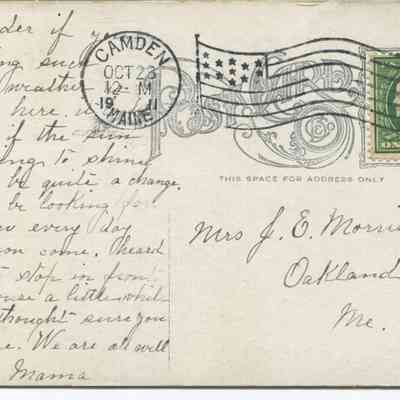 der if y
ing such
weather
here w
if the sun
ng to shine
be quite a change.
be looking for
every day
on come. heard
stop in front
ouse a little while
thought sure you
e. We are all well
Mama
CAMDEN
OCT 23
12-M
19 11
MAINE
THIS SPACE FOR ADDRESS ONLY
Mrs J. E. Morri
Oakland
Me.